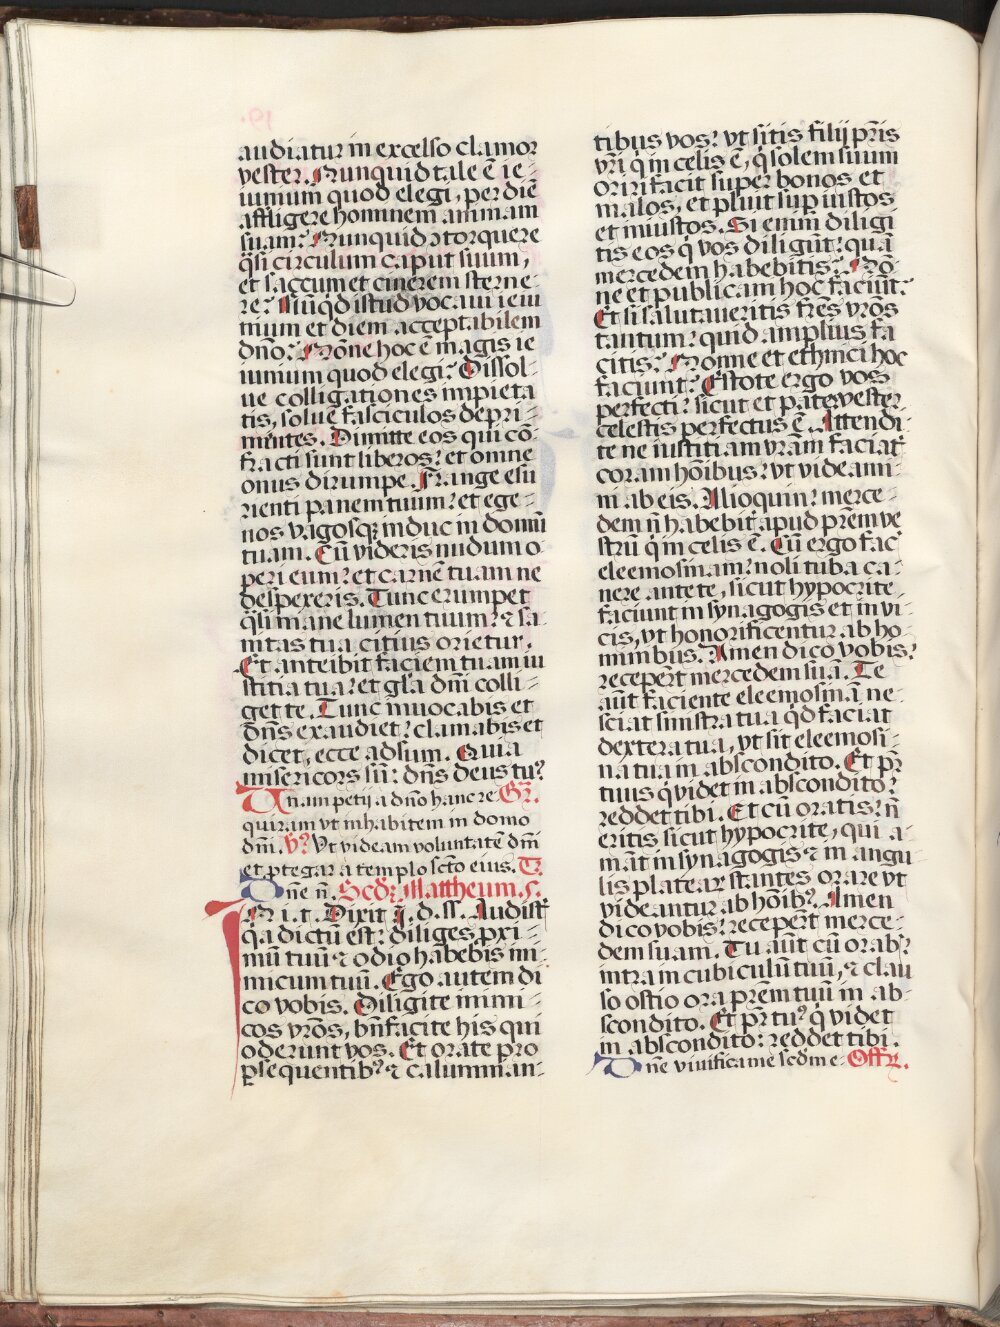 audiatur in excelso clamor
vester. Nunquid tale ē ie-
iunium quod elegi, per diē
affligere hominem animam
suam? Nunquid ↄtorquere
q̄si circulum caput suum,
et saccum et cinerem sterne-
re? Nūq̄d istud vocaui ieiu
nium et diem acceptabilem
dn̄o? Nōne hoc ē magis ie
iunium quod elegi? Dissol-
ue colligationes impieta
tis, solue fasciculos depri-
mētes. Dimitte eos qui cō-
fracti sunt liberos? et omne
onus dirumpe. Frange esu
rienti panem tuum? et ege-
nos vagosqꝫ induc in domū
tuam. Cū videris nudum o-
peri eum? et carnē tuam ne
despexeris. Tunc erumpet
q̄si mane lumen tuum? ⁊ sa-
nitas tua citius orietur,
Et anteibit faciem tuam iu
stitia tua? et gl̄a dn̄i colli-
get te. Tunc inuocabis et
dn̄s exaudiet? clamabis et
dicet, ecce adsum. Quia
misericors sū: dn̄s deus tu?
Unam petij a dn̄o hanc re Gr̄.
quiram vt inhabitem in domo
dn̄i. V? Vt videam voluntatē dn̄i
et ꝓtegar a templo scto eius. Tr̄
Dn̄e n̄. Scd̄ꝫ Mattheum. S.
IN i. t. Dixit i. d. ss. Audist̄
q̄a dictū est? diliges ꝓxi-
mū tuū ⁊ odio habebis ini-
micum tuū. Ego autem di
co vobis. Diligite inimi-
cos vr̄os, bn̄facite his qui
oderunt vos. Et orate pro
ꝑsequentib? ⁊ calumnian-
tibus vos? vt sitis filij pr̄is
vr̄i q̄ in celis ē, q̄ solem suum
oriri facit super bonos et
malos, et pluit suꝑ iustos
et iniustos. Si enim diligi
tis eos q̄ vos diligūt? quā
mercedem habebitis? Nō-
ne et publicani hoc faciūt?
Et si salutaueritis fr̄es vr̄os
tantum? quid amplius fa
citis? Nonne et ethnici hoc
faciunt? Estote ergo vos
perfecti? sicut et pater vester
celestis perfectus ē. Attendi-
te ne iustitiam vr̄am faciat̄
coram hōibus? vt videami-
ni ab eis. Alioquin? merce-
dem n̄ habebit̄ apud pr̄em ve
strū q̄ in celis ē. Cū ergo fac̄
eleemosinam? noli tuba ca-
nere ante te, sicut hypocrite
faciunt in synagogis et in vi-
cis, vt honorificentur ab ho-
minibus. Amen dico vobis?
receper̄t mercedem suā. Te
aūt faciente eleemosinā ne-
sciat sinistra tua q̄d faciat
dextera tua, vt sit eleemosi-
na tua in abscondito. Et pr̄
tuus q̄ videt in abscondito?
reddet tibi. Et cū oratis? n̄
eritis sicut hypocrite, qui a-
māt in synagogis ⁊ in angu-
lis plateaꝝ stantes orare vt
videantur ab hōib?. Amen
dico vobis? receper̄t merce-
dem suam. Tu aūt cū orab?
intra in cubiculū tuū, ⁊ clau
so ostio ora pr̄em tuū in ab-
scondito. Et pr̄ tu? q̄ videt
in abscondito: reddet tibi.
Dn̄e viuifica me scd̄m e- Offr̄.